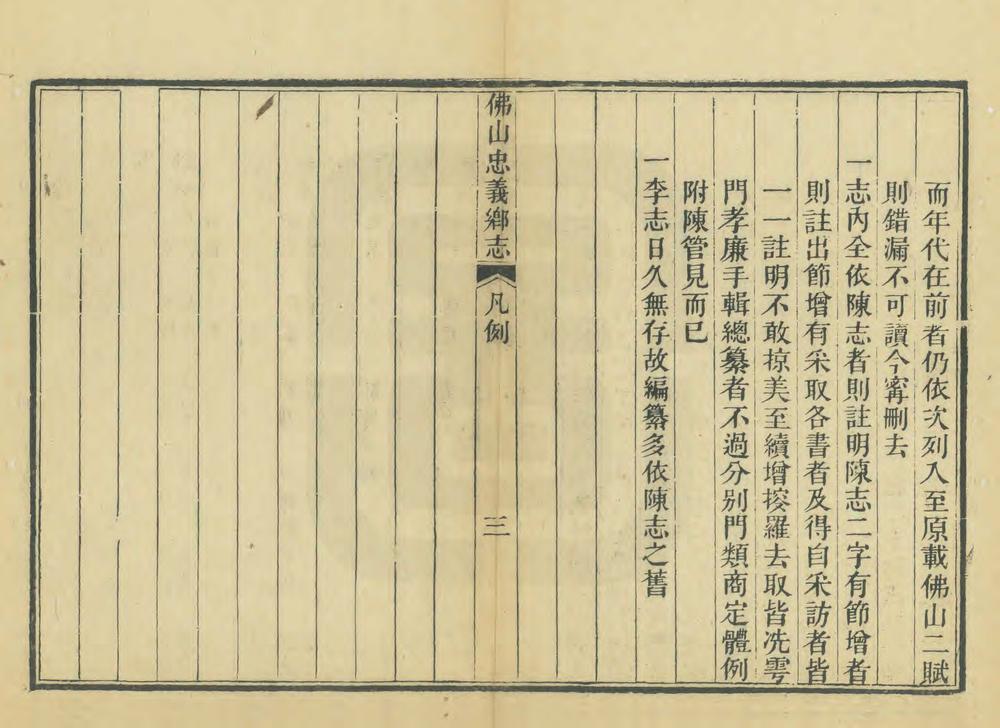 而年代在前者仍依次列入至原載佛山二賦
則錯漏不可讀今寗刪去
一志內全依陳志者則註明陳志二字有節增者
則註出節增有采取各書者及得自采訪者皆
一一註明不敢掠美至續增搜羅去取皆冼雩
門孝廉手輯總纂者不過分別門類商定體例
附陳管見而已
一李志日久無存故編纂多依陳志之舊
佛山忠義鄉志
凡例
三